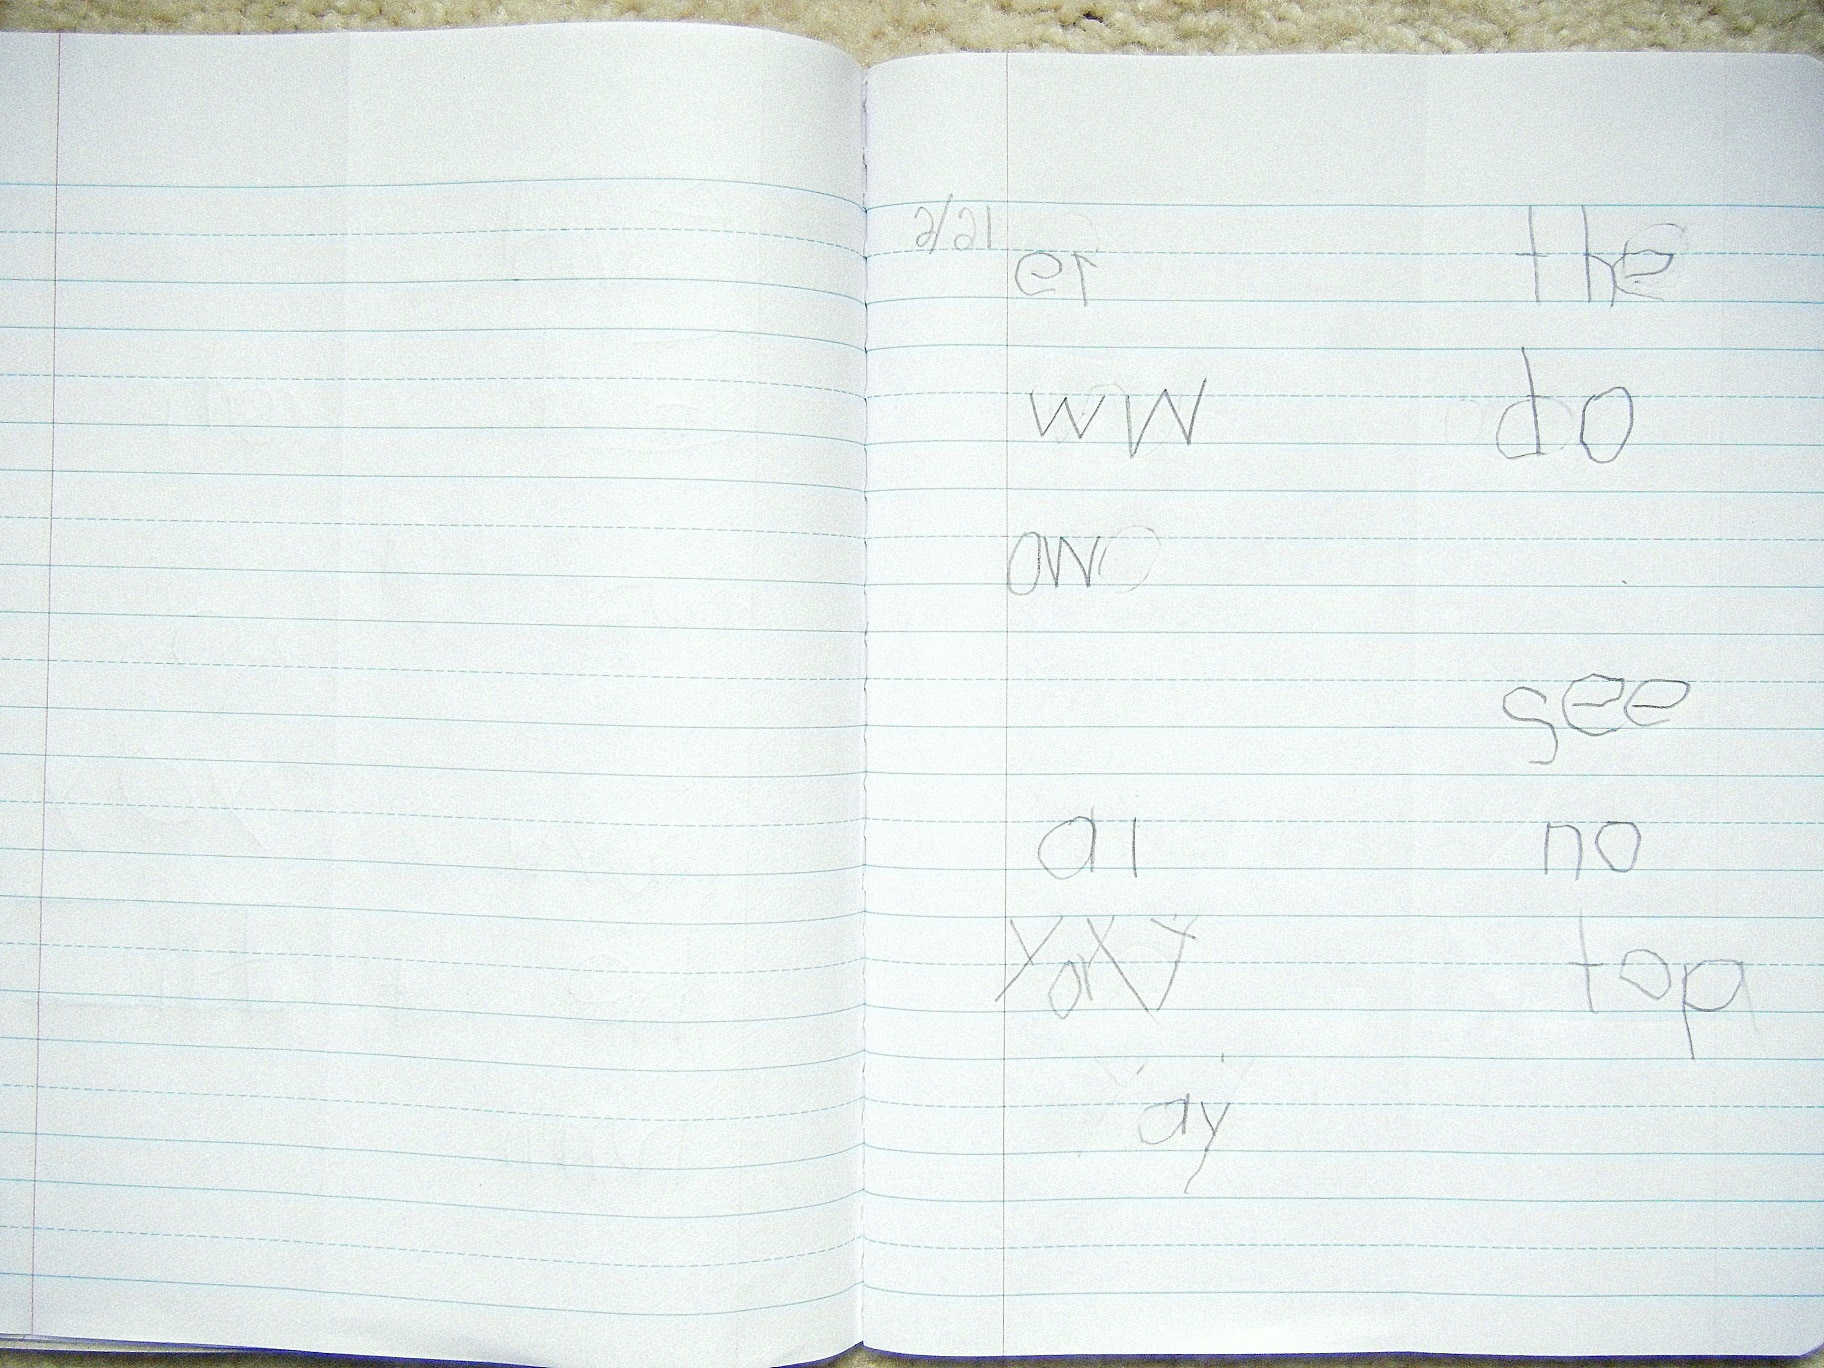 2/21
er the
ww do
ow
see
ai no
or top
ay